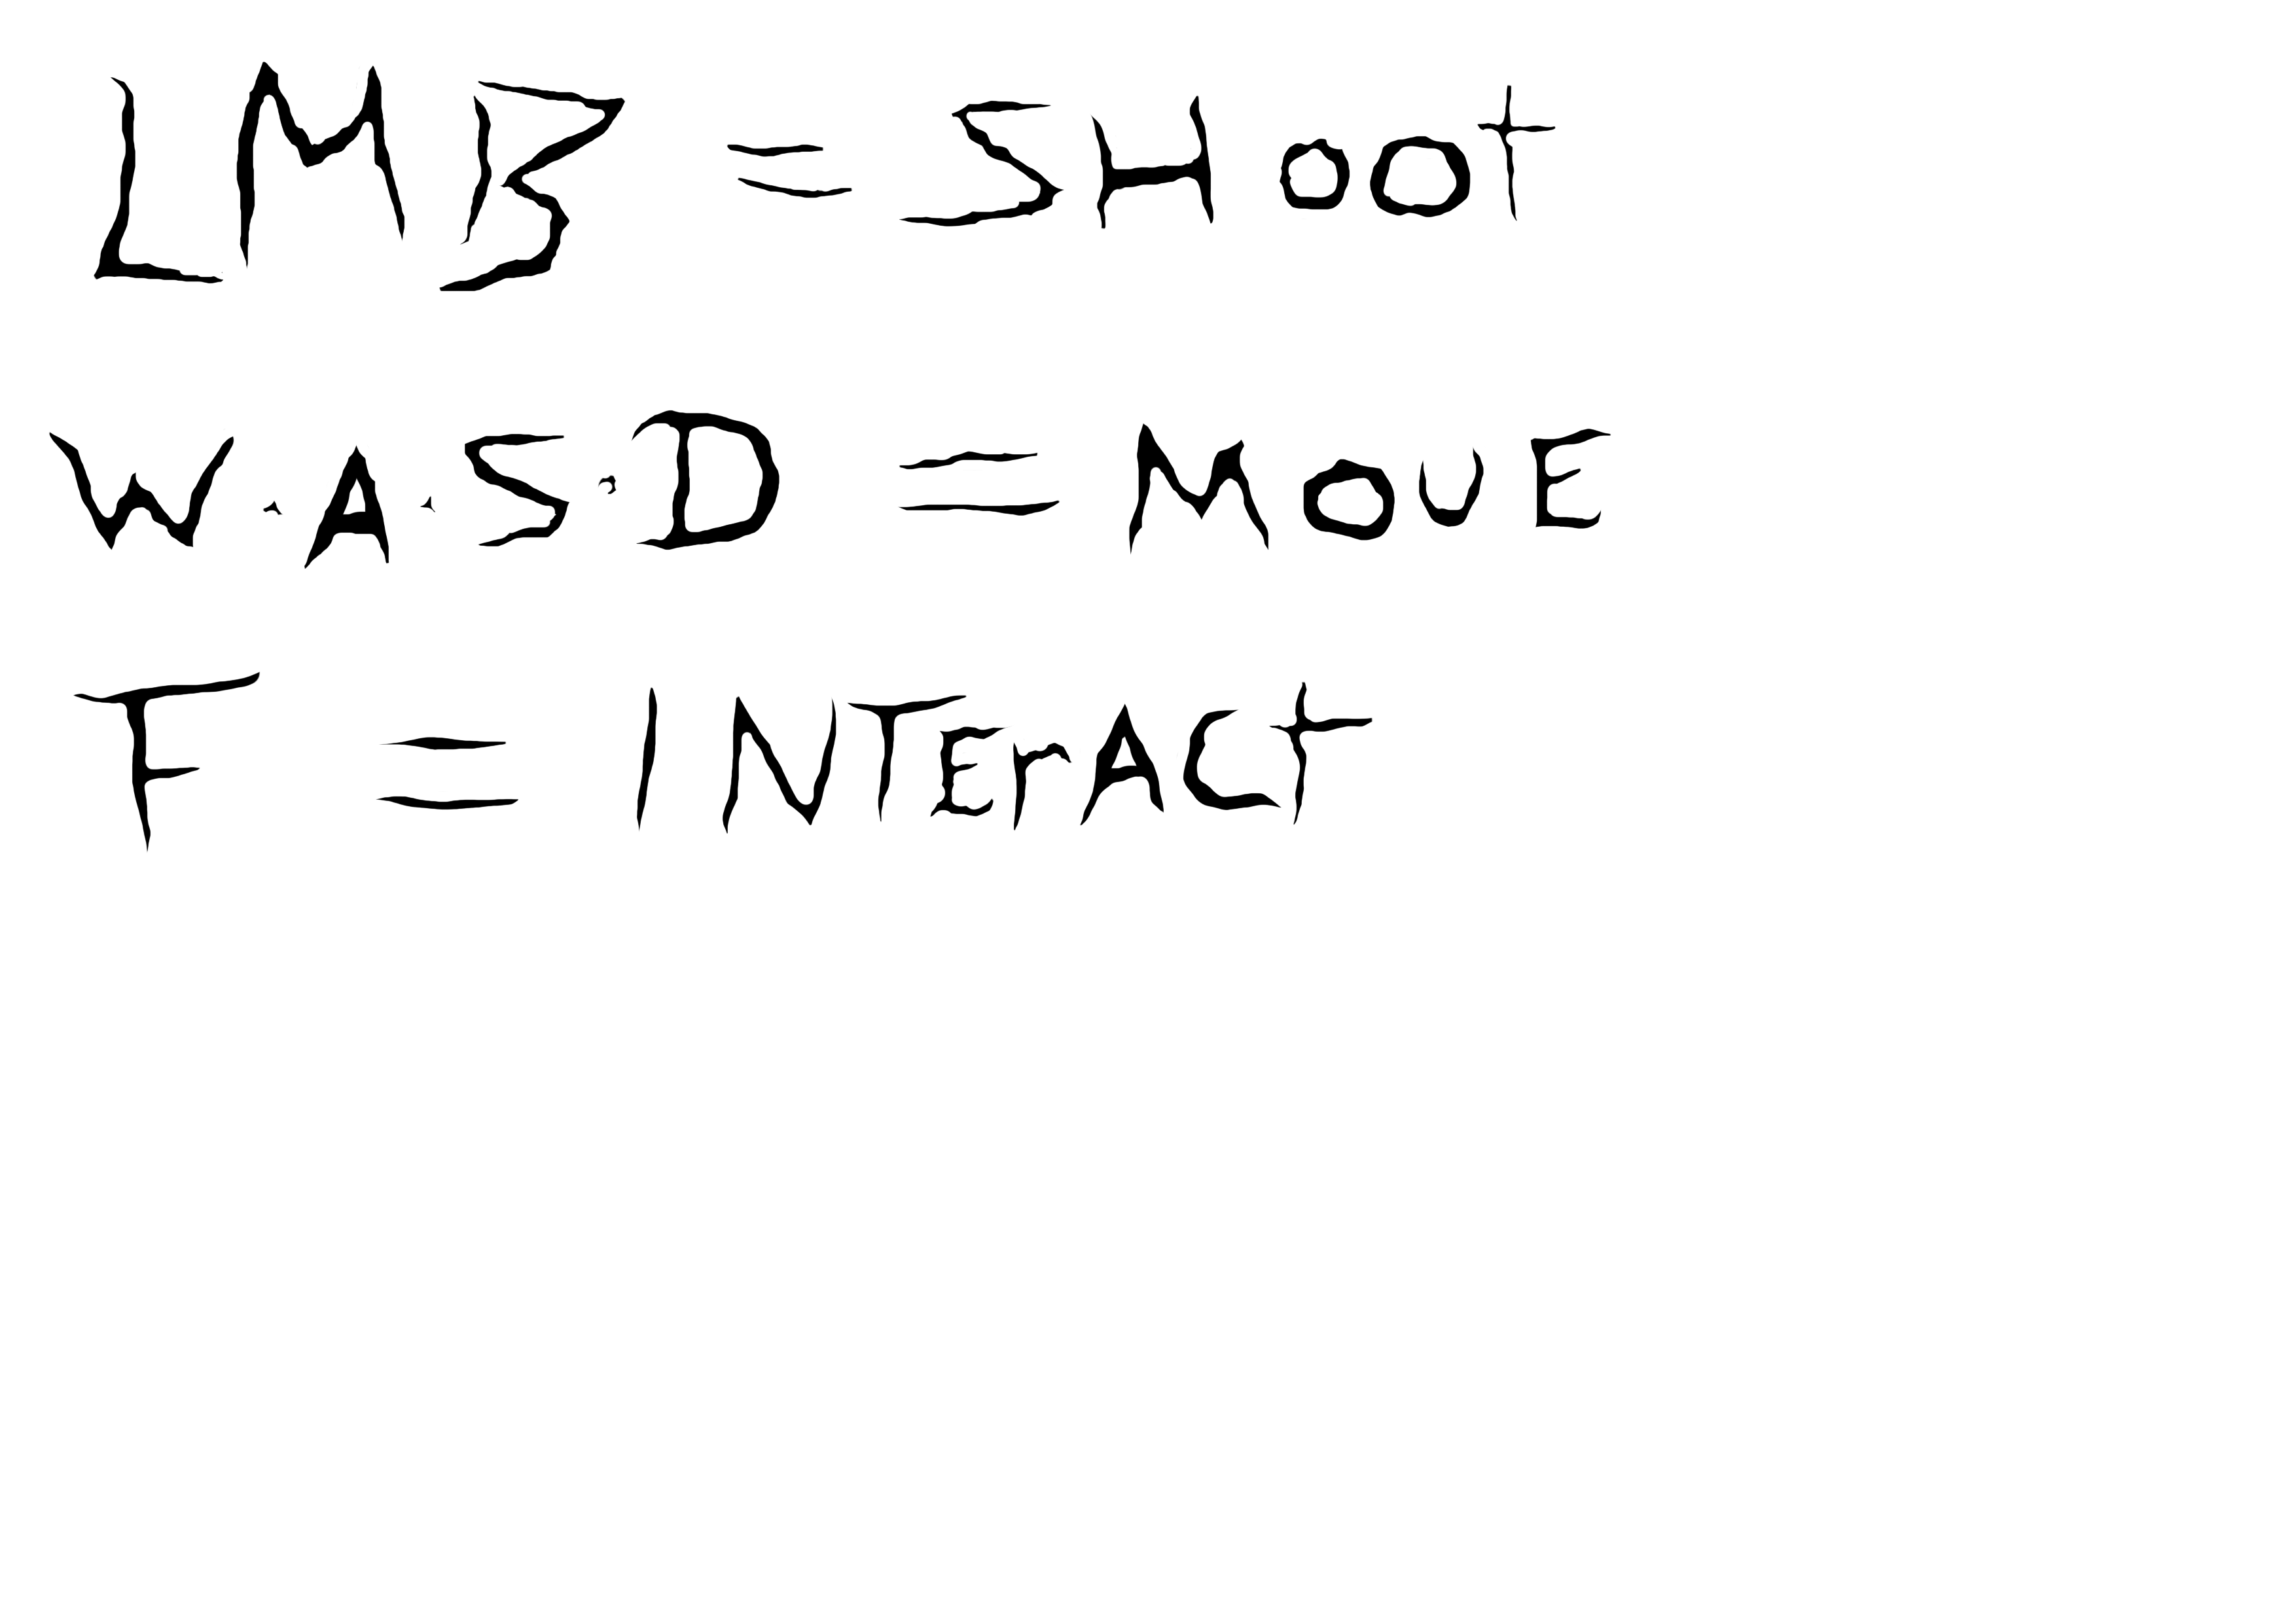 LMB = SHoot
W.A.S.D = MOVE
F = INTErACt